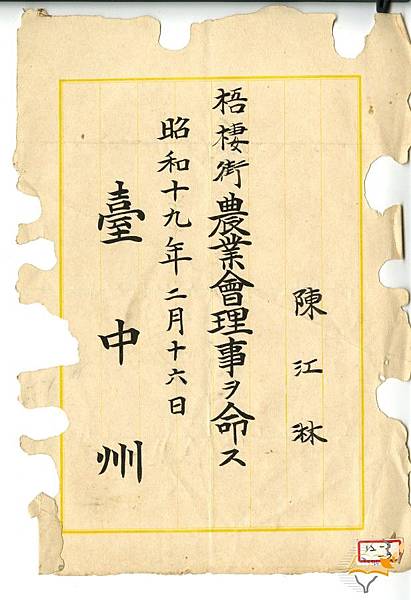 陳江淋
梧棲街農業會理事ヲ命ス
昭和十九年二月十六日
臺中州